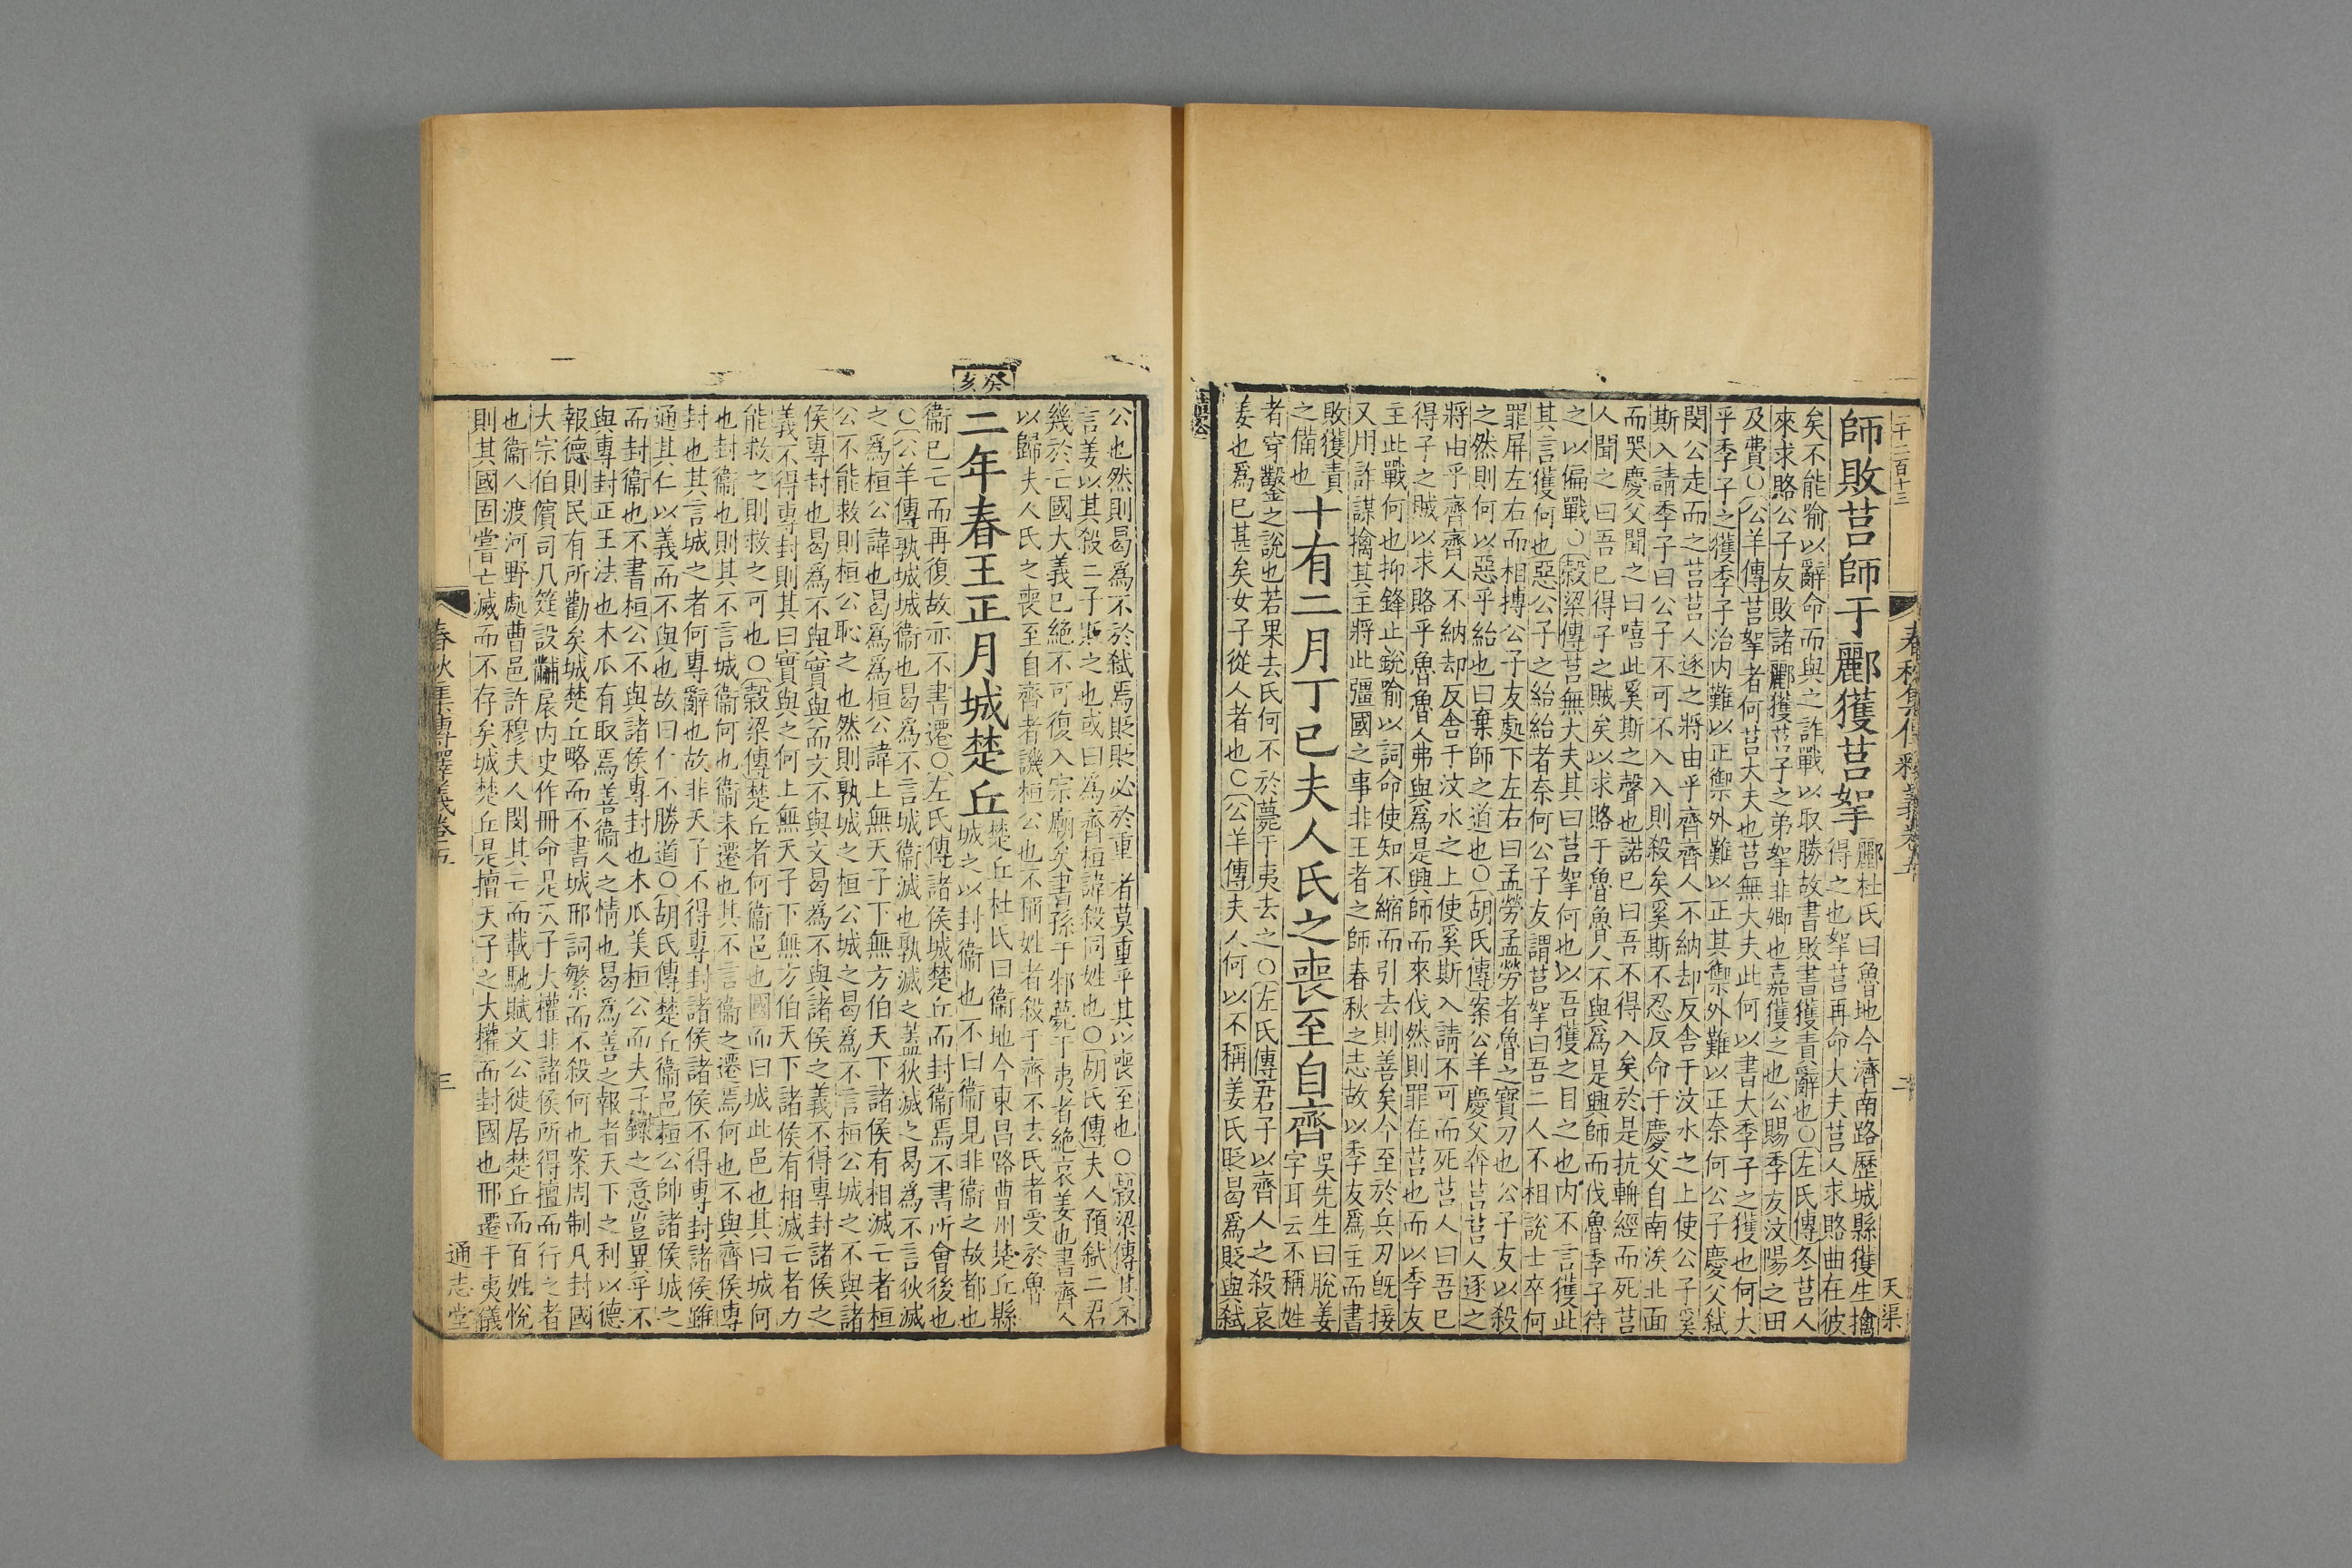 二千二百十三
春秋集傳釋義卷五
二
天渠
師敗莒師于酈獲莒挐
酈杜氏曰魯地今濟南路歷城縣獲生擒
得之也挐莒再命大夫莒人求賂曲在彼
矣不能喻以辭命而與之詐戰以取勝故書敗書獲責辭也○左氏傳冬莒人
來求賂公子友敗諸酈獲莒子之弟挐非卿也嘉獲之也公賜季友汶陽之田
及費○公羊傳莒挐者何莒大夫也莒無大夫此何以書大季子之獲也何大
乎季子之獲季子治内難以正禦外難以正其禦外難以正奈何公子慶父弒
閔公走而之莒莒人逐之將由乎齊齊人不納却反舍于汶水之上使公子奚
斯入請季子曰公子不可不入入則殺矣奚斯不忍反命于慶父自南涘北面
而哭慶父聞之曰嘻此奚斯之聲也諾已曰吾不得入矣於是抗輈經而死莒
人聞之曰吾已得子之賊矣以求賂于魯魯人不與爲是興師而伐魯季子待
之以偏戰○穀梁傳莒無大夫其曰莒挐何也以吾獲之目之也内不言獲此
其言獲何也惡公子之紿紿者奈何公子友謂莒挐曰吾二人不相說士卒何
罪屏左右而相搏公子友處下左右曰孟勞孟勞者魯之寶刀也公子友以殺
之然則何以惡乎紿也曰棄師之道也○胡氏傳案公羊慶父奔莒莒人逐之
將由乎齊齊人不納却反舍于汶水之上使奚斯入請不可而死莒人曰吾已
得子之賊以求賂乎魯魯人弗與爲是興師而來伐然則罪在莒也而以季友
主此戰何也抑鋒止銳喻以詞命使知不縮而引去則善矣今至於兵刃旣接
又用詐謀擒其主將此彊國之事非王者之師春秋之志故以季友爲主而書
敗獲責
之備也
十有二月丁巳夫人氏之喪至自齊
吳先生曰脫姜
字耳云不稱姓
者穿鑿之說也若果去氏何不於薨于夷去之○左氏傳君子以齊人之殺哀
姜也爲已甚矣女子從人者也○公羊傳夫人何以不稱姜氏貶曷爲貶與弒
公也然則曷爲不於弒焉貶貶必於重者莫重乎其以喪至也○穀梁傳其不
言姜以其殺二子貶之也或曰爲齊桓諱殺同姓也○胡氏傳夫人預弒二君
幾於亡國大義已絕不可復入宗廟矣書孫于邾薨于夷者絕哀姜也書齊人
以歸夫人氏之喪至自齊者譏桓公也不稱姓者殺于齊不去氏者受於魯
癸亥
二年春王正月城楚丘
楚丘杜氏曰衞地今東昌路曹州楚丘縣
城之以封衞也不曰衞見非衞之故都也
衞已亡而再復故亦不書遷○左氏傳諸侯城楚丘而封衞焉不書所會後也
○公羊傳孰城城衞也曷爲不言城衞滅也孰滅之蓋狄滅之曷爲不言狄滅
之爲桓公諱也曷爲爲桓公諱上無天子下無方伯天下諸侯有相滅亡者桓
公不能救則桓公恥之也然則孰城之桓公城之曷爲不言桓公城之不與諸
侯專封也曷爲不與實與而文不與文曷爲不與諸侯之義不得專封諸侯之
義不得專封則其曰實與之何上無天子下無方伯天下諸侯有相滅亡者力
能救之則救之可也○穀梁傳楚丘者何衞邑也國而曰城此邑也其曰城何
也封衞也則其不言城衞何也衞未遷也其不言衞之遷焉何也不與齊侯專
封也其言城之者何專辭也故非天子不得專封諸侯諸侯不得專封諸侯雖
通其仁以義而不與也故曰仁不勝道○胡氏傳楚丘衞邑桓公帥諸侯城之
而封衞也不書桓公不與諸侯專封也木瓜美桓公而夫子錄之意豈異乎不
與專封正王法也木瓜有取焉善衞人之情也曷爲善之報者天下之利以德
報德則民有所勸矣城楚丘略而不書城邢詞繁而不殺何也案周制凡封國
大宗伯儐司几筵設黼扆内史作冊命是天子大權非諸侯所得擅而行之者
也衞人渡河野處曹邑許穆夫人閔其亡而載馳賦文公徙居楚丘而百姓悅
則其國固嘗亡滅而不存矣城楚丘是擅天子之大權而封國也邢遷于夷儀
春秋集傳釋義卷五
三
通志堂